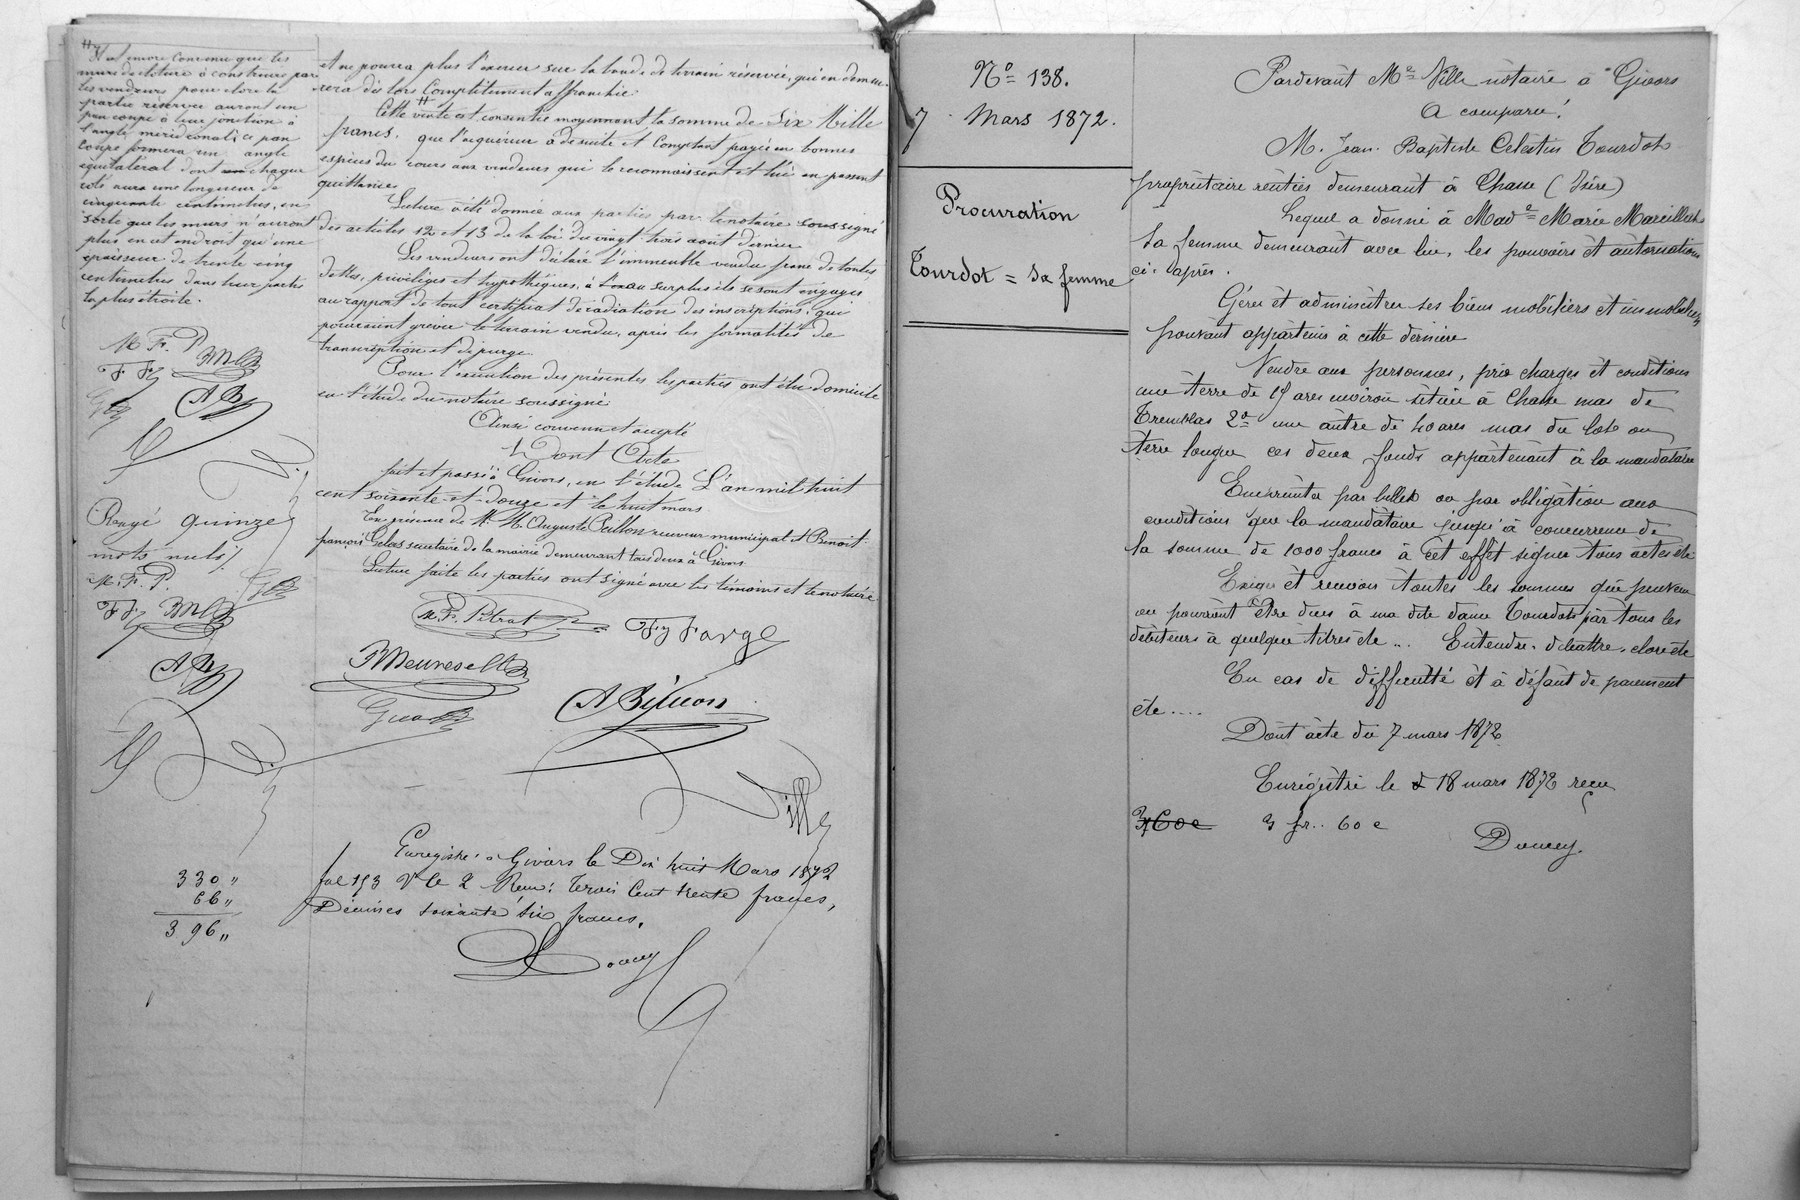 Il est encore convenu que les
murs de cloture à construire par
les vendeurs pour clore la
partie réservée auront un
pan coupé à leur jonction à
l'angle méridional; ce pan
coupé formera un angle
équilatéral dont chaque
côté aura une longueur de
cinquante centimètres, en
sorte que les murs n'auront
plus en cet endroit qu'une
épaisseur de trente cinq
centimètres dans leur partie
la plus étroite.
M. F. P.
Rayé quinze
mots nuls /.
M. F. P.
330 "
66 "
396 "
et ne pourra plus l'exercer sur la bande de terrain réservée, qui en demeu-
rera dès lors complètement affranchie.
Cette vente est consentie moyennant la somme de Six Mille
francs, que l'acquéreur a de suite et comptant payée en bonnes
espèces du cours aux vendeurs qui le reconnaissent et lui en passent
quittance.
Lecture a été donnée aux parties par le notaire soussigné
des articles 12 et 13 de la loi du vingt trois août dernier.
Les vendeurs ont déclaré l'immeuble vendu franc de toutes
dettes, privilèges et hypothèques, au surplus ils se sont engagés
au rapport de tout certificat de radiation des inscriptions qui
pourraient grever le terrain vendu, après les formalités de
transcription et de purge.
Pour l'exécution des présentes les parties ont élu domicile
en l'étude du notaire soussigné.
Ainsi convenu et accepté
Dont Acte
fait et passé à Givors, en l'étude L'an mil huit
cent soixante et douze et le huit mars
En présence de M. M. Auguste Peillon receveur municipal et Benoit
françois secrétaire de la mairie demeurant tous deux à Givors
Lecture faite les parties ont signé avec les témoins et le notaire
M. F. Pitrat
Fy Farge
Ville
Enregistré à Givors le Dix huit Mars 1872
fol 153 V° Ce 2 Reçu: trois Cent trente francs,
Décimes soixante six francs.
Doucey
N° 138.
7 Mars 1872.
Procuration
Tourdot = sa femme
Pardevant Me Ville notaire à Givors
A comparu:
M. Jean Baptiste Célestin Tourdot
propriétaire rentier demeurant à Chasse (Isère)
Lequel a donné à Made Marie Mareillat
sa femme demeurant avec lui, les pouvoirs et autorisations
ci-après.
Gérer et administrer ses biens mobiliers et immobiliers
pouvant appartenir à cette dernière
Vendre aux personnes, prix charges et conditions
une terre de 19 ares environ située à Chasse mas de
Tremblas 2° une autre de 40 ares mas du Lot ou
terre longue ces deux fonds appartenant à la mandataire
Emprunter par billet ou par obligation aux
conditions que la mandataire jusqu'à concurrence de
la somme de 1000 francs à cet effet signer tous actes etc
Exiger et recevoir toutes les sommes qui peuvent
ou pourront être dues à ma dite dame Tourdot par tous les
débiteurs à quelque titres etc ... Entendre, débattre, clore etc
En cas de difficulté et à défaut de paiement
etc ....
Dont acte du 7 mars 1872
Enregistré le 18 mars 1872 reçu
3f60c 3 fr.. 60 c
Doucey.